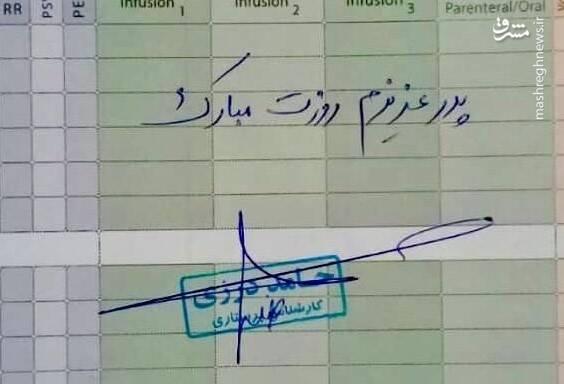 RR PS PE Infusion 1 Infusion 2 Infusion 3 Parenteral/Oral
مشرق
mashreghnews.ir
پدر عزیزم روزت مبارک
حامد درزی
کارشناس پرستاری